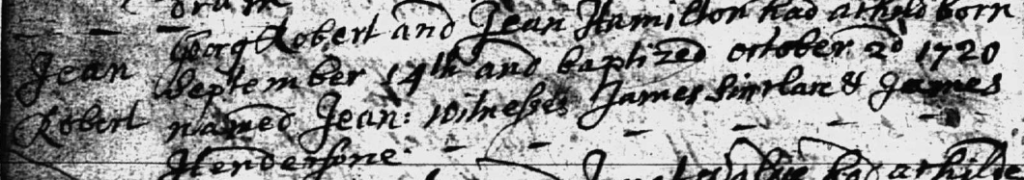 Georg Robert and Jean Hamilton had a child born
Jean September 14th and baptized october 2d 1720
Robert named Jean: witnesses James Sinclare & James
Hendersone